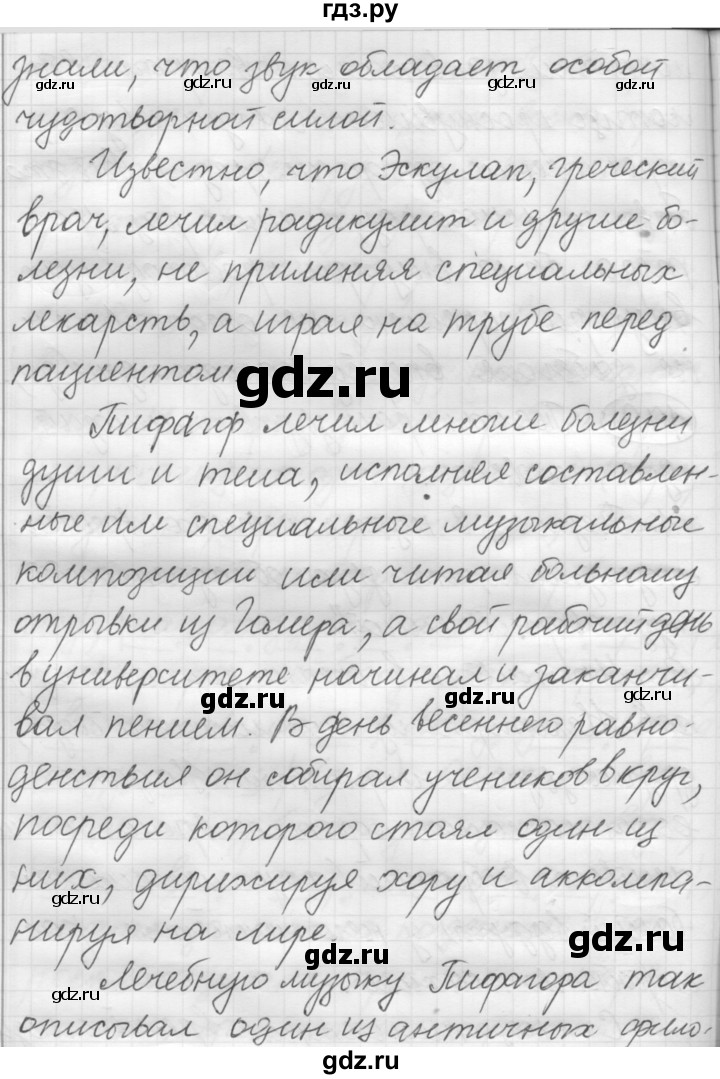 гдз.ру
знали, что звук обладает особой
gdz.ru gdz.ru gdz.ru gdz.ru
чудотворной силой.
Известно, что Эскулап, греческий
врач, лечил радикулит и другие бо-
лезни, не применяя специальных
лекарств, а играя на трубе перед
пациентом
gdz.ru
Пифагор лечил многие болезни
души и тела, исполняя составлен-
ные им специальные музыкальные
композиции или читая больному
отрывки из Гомера, а свой рабочий день
в университете начинал и заканчи-
gdz.ru gdz.ru
вал пением. В день весеннего равно-
денствия он собирал учеников в круг,
посреди которого стоял один из
них, дирижируя хору и аккомпа-
gdz.ru
нируя на лире.
gdz.ru gdz.ru
Лечебную музыку Пифагора так
gdz.ru
описывал один из античных фило-
gdz.ru